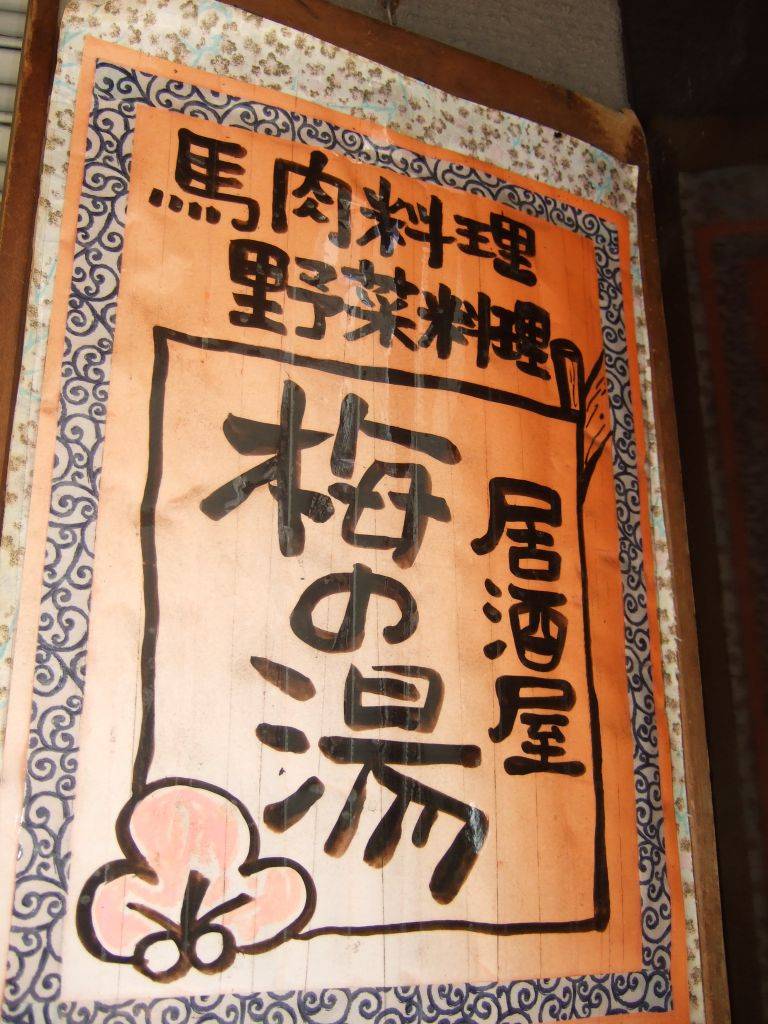 馬肉料理
野菜料理
居酒屋
梅の湯